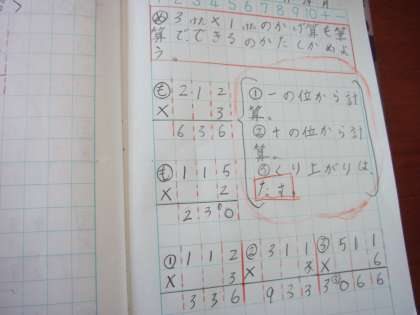 2 3 4 5 6 7 8 9 10 + −
月
め 3けた×1けたのかけ算も筆
算でできるのかたしかめよ
う。
も 2 1 2
× 3
6 3 6
①一の位から計
算。
②十の位から計
算。
③くり上がりは、
たす。
も 1 1 5
× 2
2 3 0
① 1 1 2
× 3
3 3 6
② 3 1 1
× 3
9 3 3
③ 5 1 1
× 6
3 0 6 6